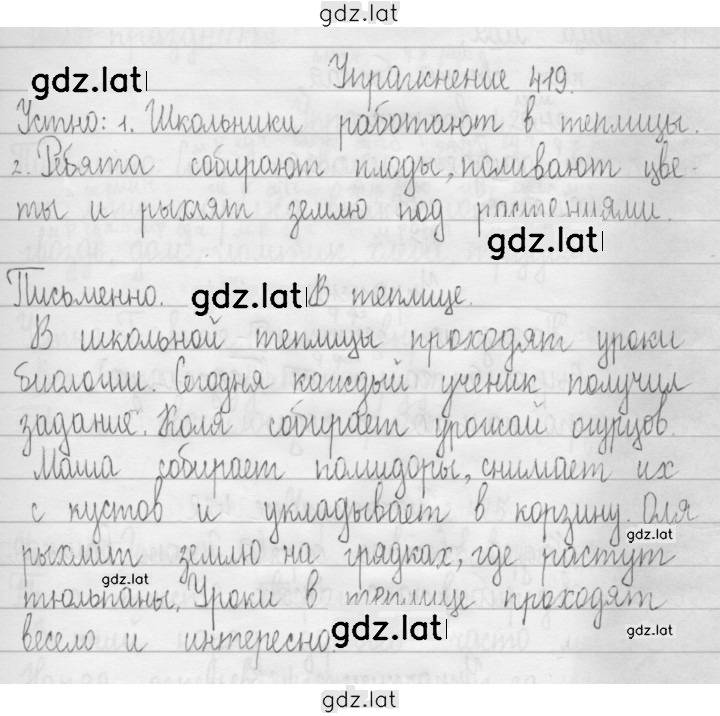 gdz.lat
gdz.lat
Упражнение 419.
Устно: 1. Школьники работают в теплицы.
2. Ребята собирают плоды, поливают цве-
ты и рыхлят землю под растениями.
gdz.lat
Письменно. gdz.lat В теплице.
В школьной теплицы проходят уроки
биологии. Сегодня каждый ученик получил
задание. Коля собирает урожай огурцов.
Маша собирает помидоры, снимает их
с кустов и укладывает в корзину. Оля
gdz.lat
рыхлит землю на грядках, где растут
gdz.lat
тюльпаны. Уроки в теплице проходят
весело и интересно. gdz.lat
gdz.lat
gdz.lat